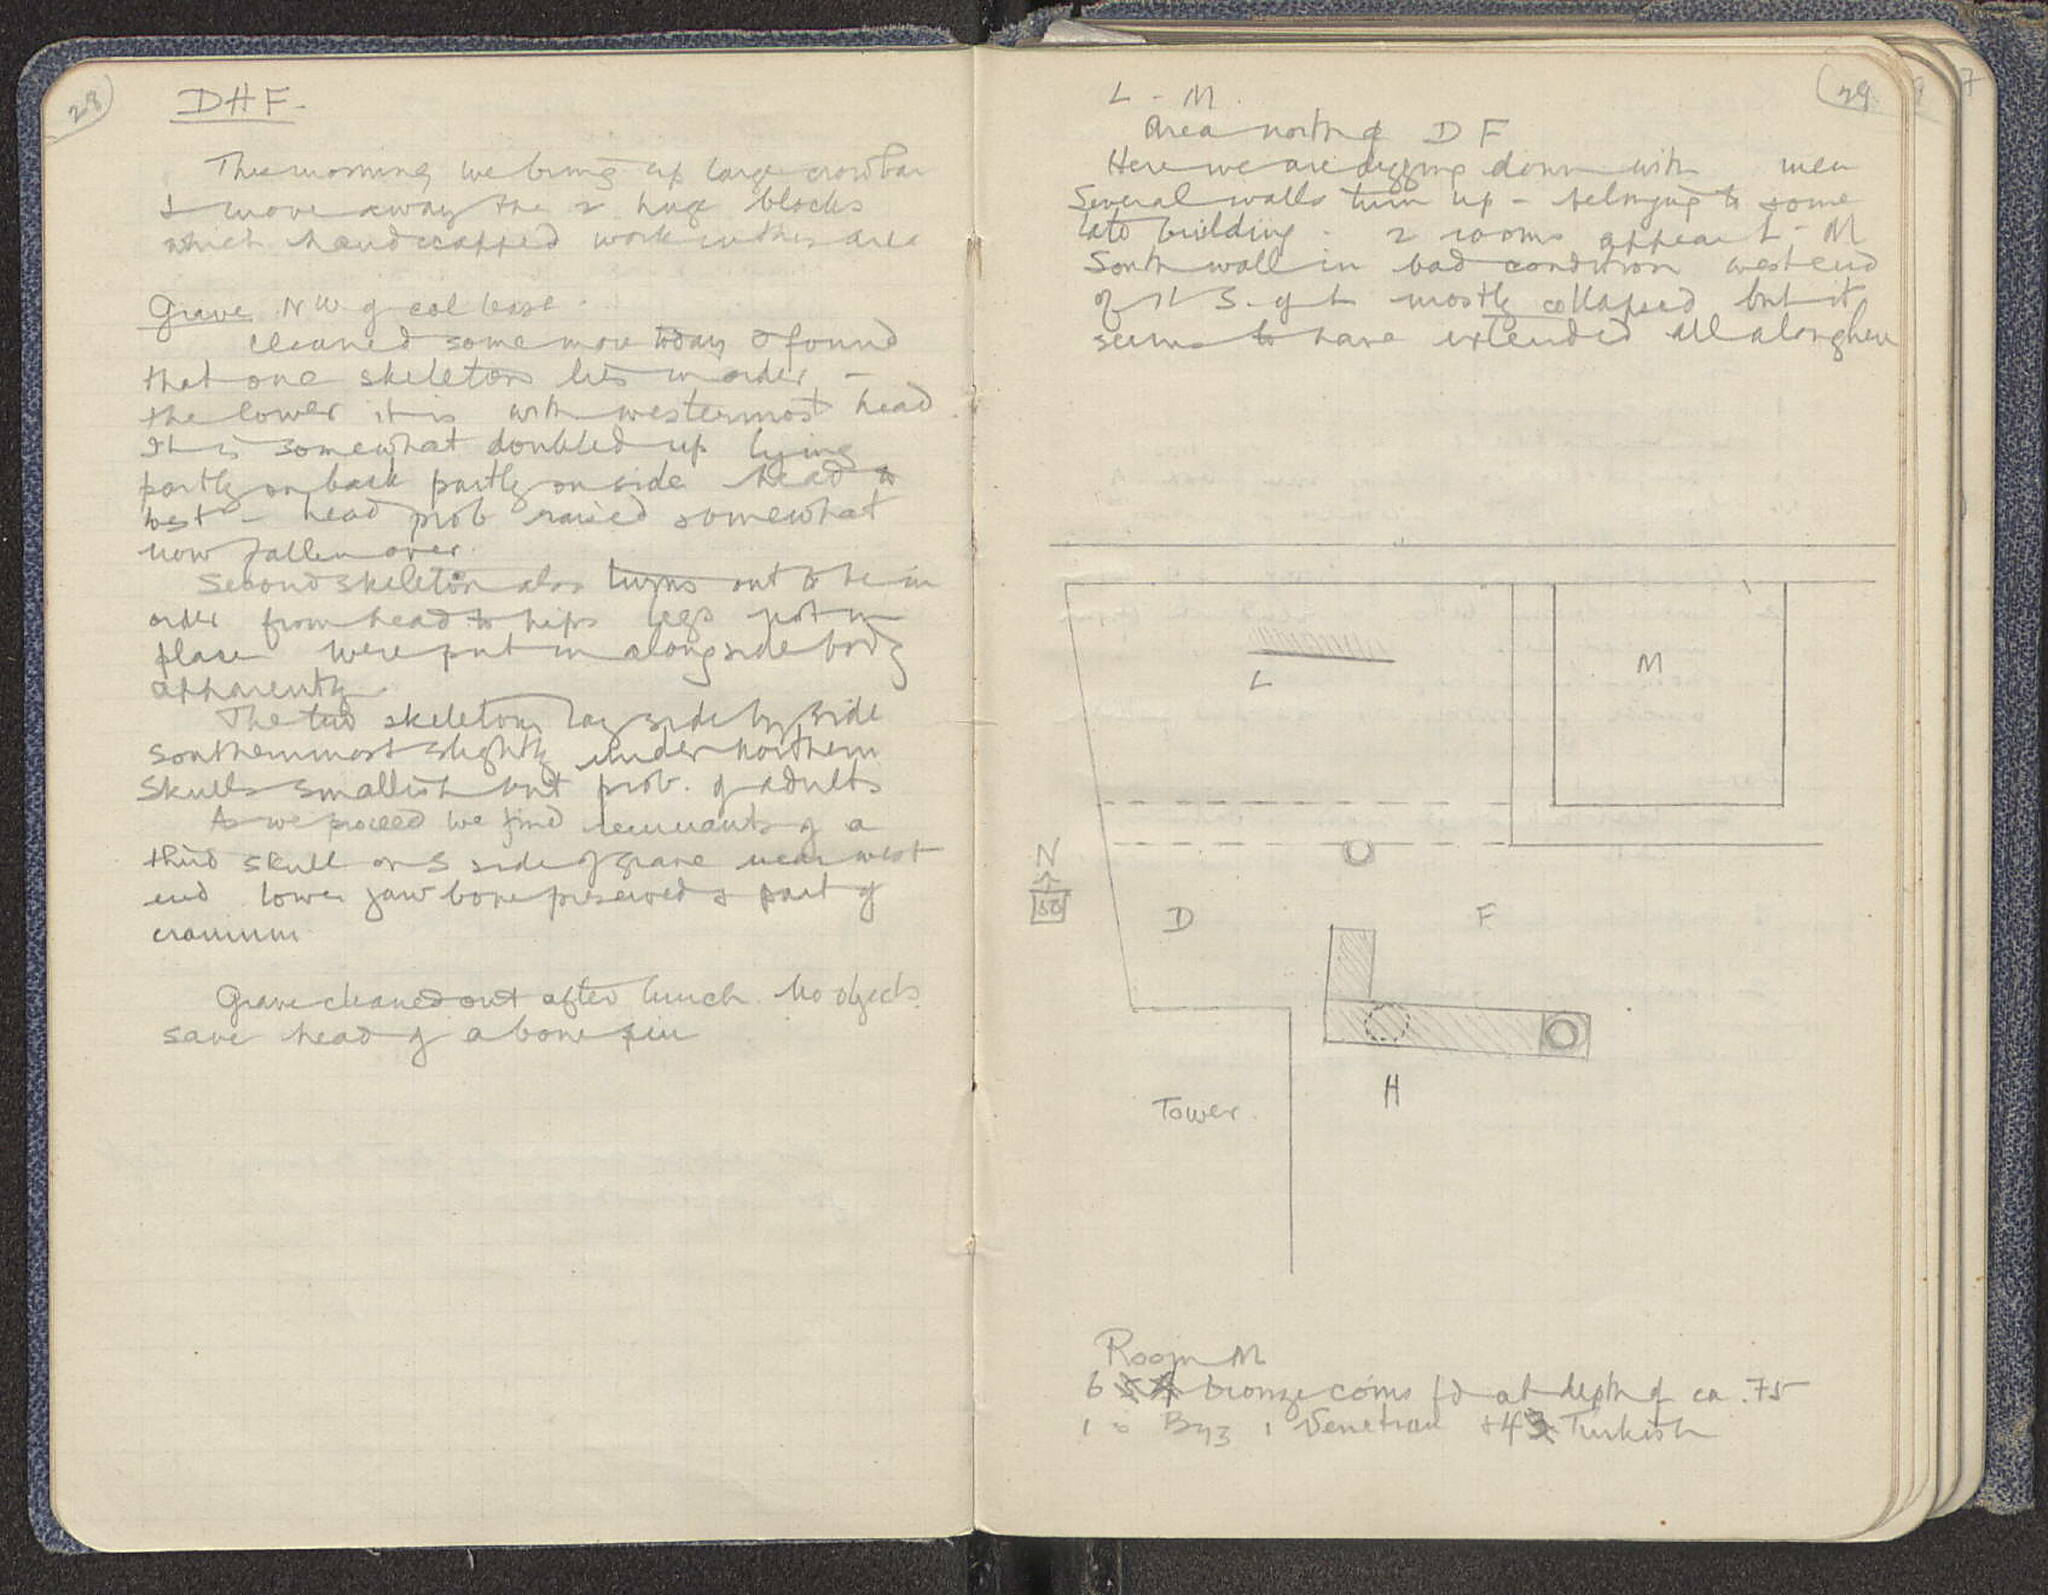 28
DHF.
This morning we bring up large crowbar
& move away the 2 huge blocks
which handicapped work in this area
Grave NW of col base.
Cleaned some more today & found
that one skeleton lies in order –
the lower it is with westernmost head.
It is somewhat doubled up lying
partly on back partly on side head to
west – head prob raised somewhat
now fallen over.
Second skeleton also turns out to be in
order from head to hips legs not in
place were put in alongside body
apparently.
The two skeletons lay side by side
southernmost slightly under northern
Skulls smallish but prob. of adults
As we proceed we find remnants of a
third skull on S side of grave near west
end lower jaw bone preserved & part of
cranium
Grave cleaned out after lunch. No objects
save head of a bone pin
29
L - M.
Area north of DF
Here we are digging down with men
Several walls turn up – belonging to some
late building. 2 rooms appear L - M
South wall in bad condition west end
of it S. of L mostly collapsed but it
seems to have extended all along here
L
M
N
50
D
F
H
Tower.
Room M
6 bronze coins fd at depth of ca .75
1 is Byz 1 Venetian & 4 Turkish